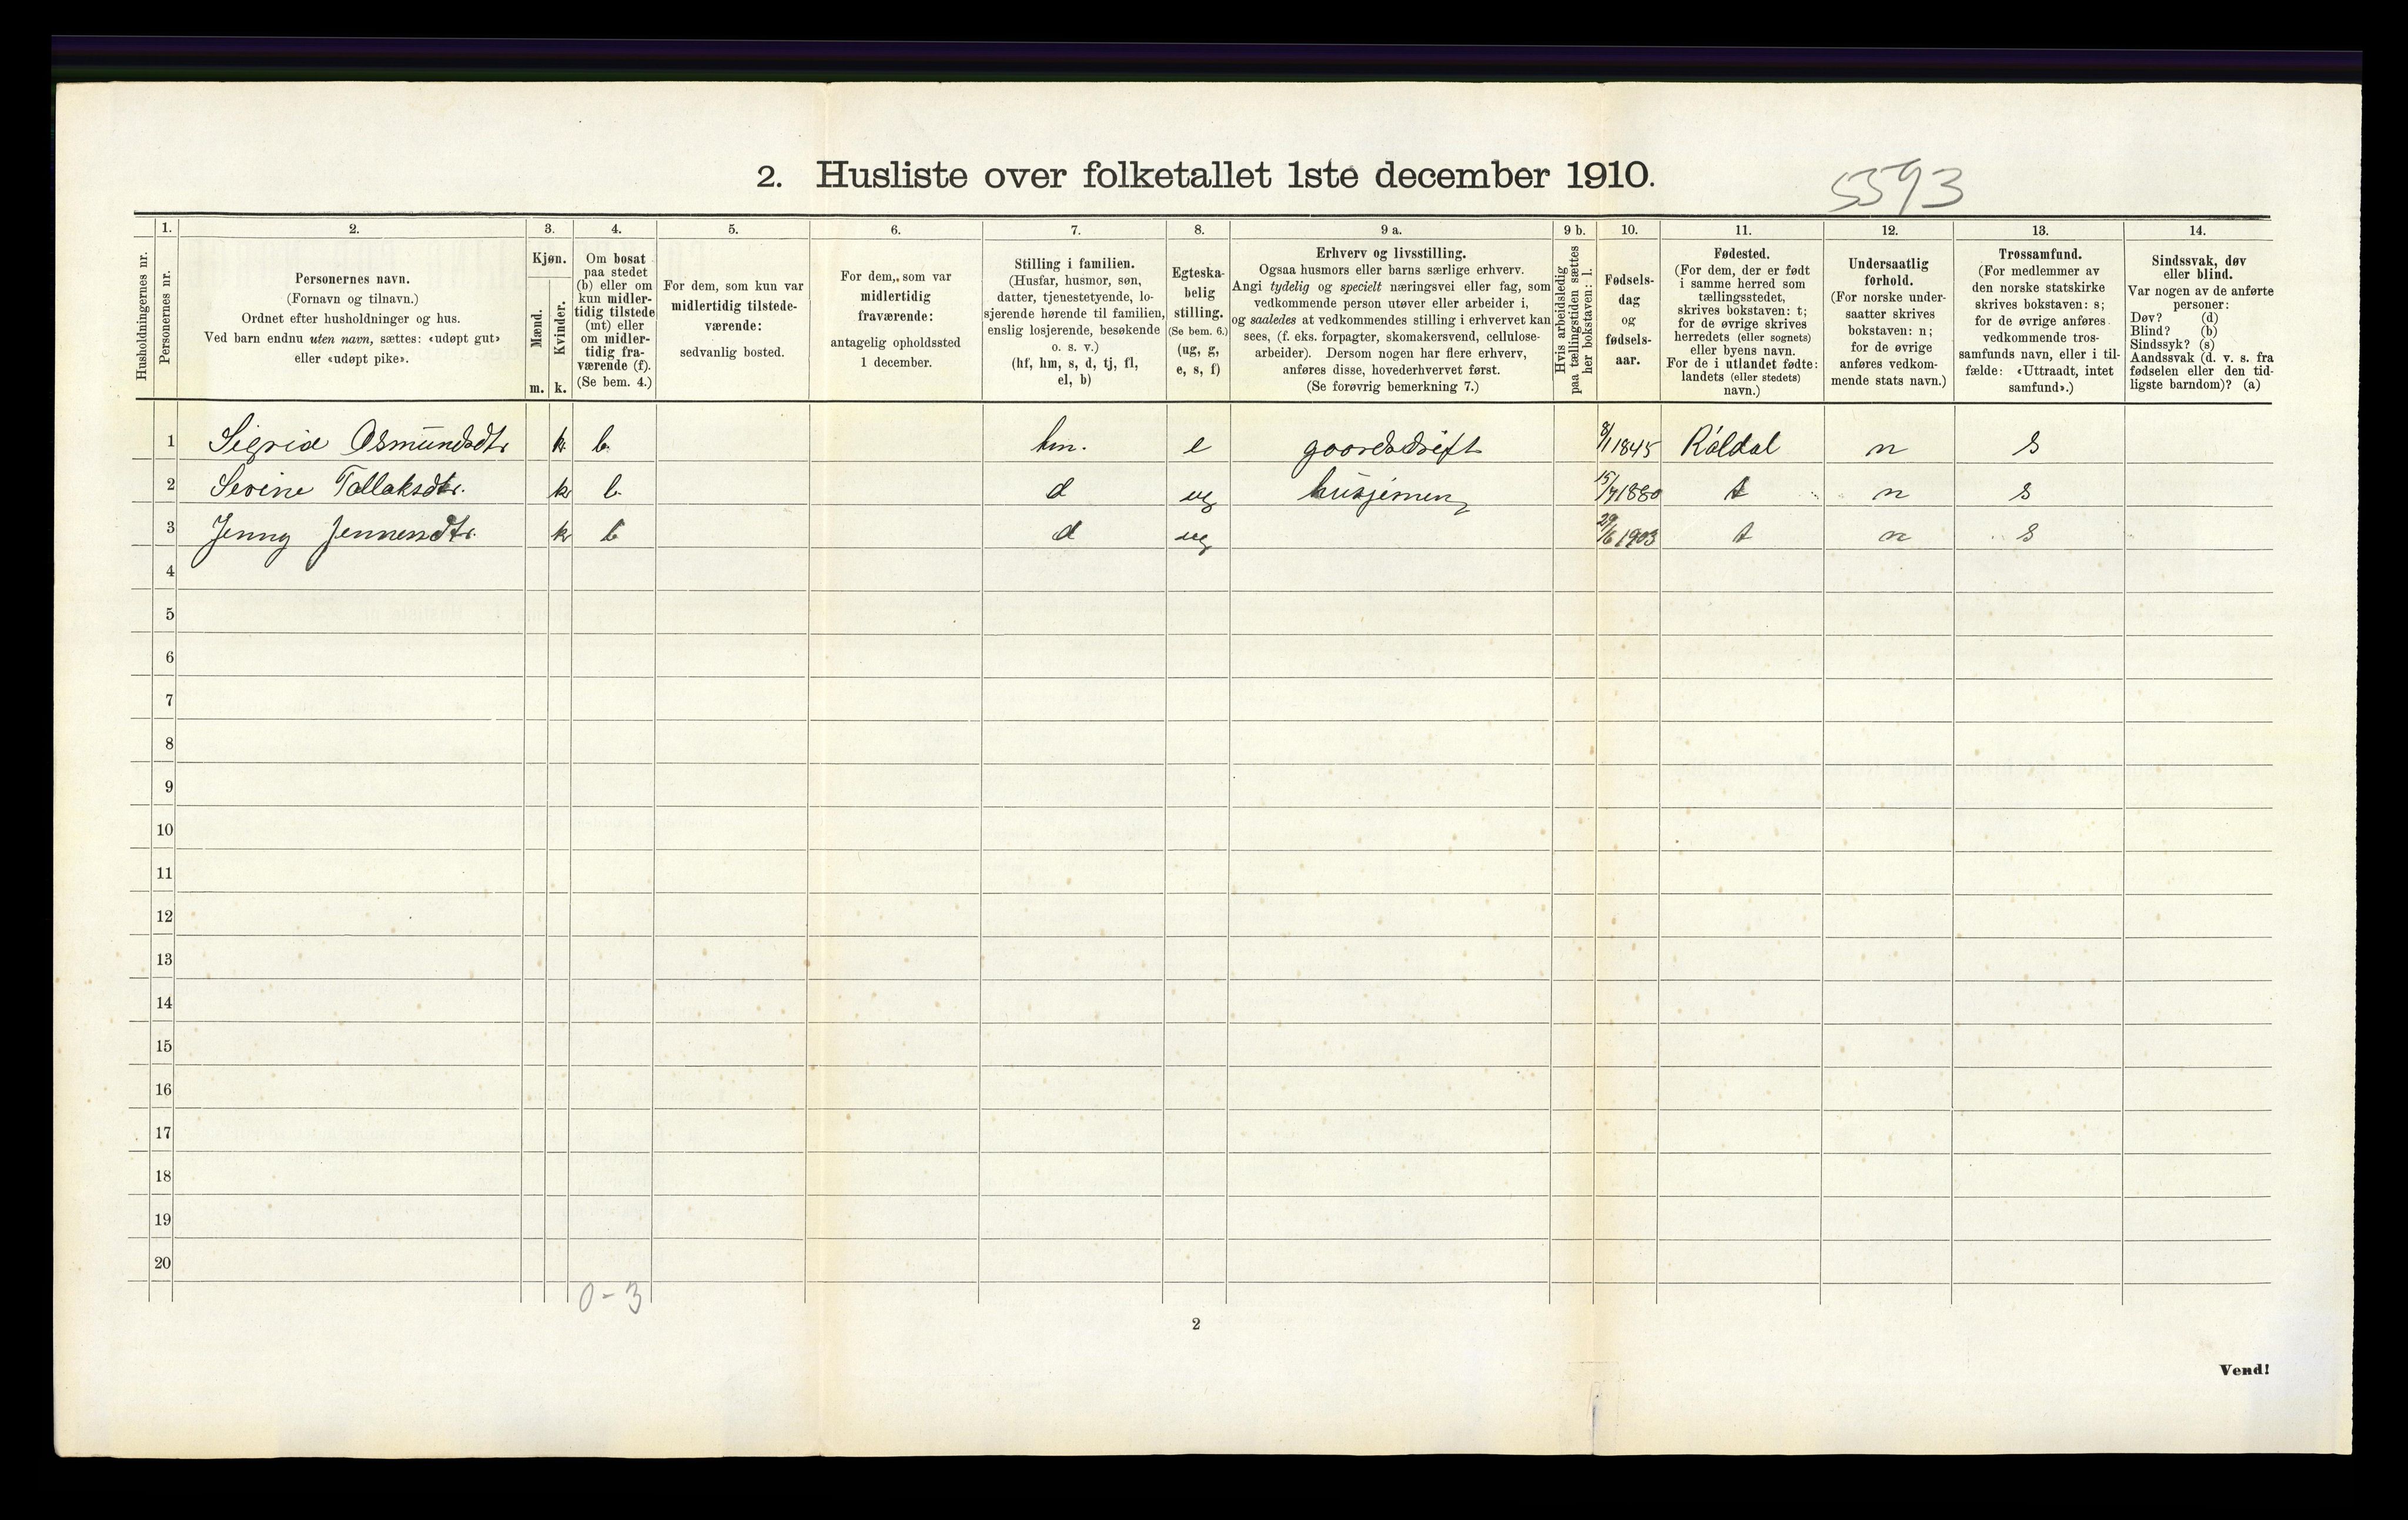 2. Husliste over folketallet 1ste december 1910.
5593
Husholdningernes nr.
1.
Personernes nr.
2.
Personernes navn.
(Fornavn og tilnavn.)
Ordnet efter husholdninger og hus.
Ved barn endnu uten navn, sættes: «udøpt gut»
eller «udøpt pike».
3.
Kjøn.
Mænd.
m.
Kvinder.
k.
4.
Om bosat
paa stedet
(b) eller om
kun midler-
tidig tilstede
(mt) eller
om midler-
tidig fra-
værende (f).
(Se bem. 4.)
5.
For dem, som kun var
midlertidig tilstede-
værende:
sedvanlig bosted.
6.
For dem, som var
midlertidig
fraværende:
antagelig opholdssted
1 december.
7.
Stilling i familien.
(Husfar, husmor, søn,
datter, tjenestetyende, lo-
sjerende hørende til familien,
enslig losjerende, besøkende
o. s. v.)
(hf, hm, s, d, tj, fl,
el, b)
8.
Egteska-
belig
stilling.
(Se bem. 6.)
(ug, g,
e, s, f)
9 a.
Erhverv og livsstilling.
Ogsaa husmors eller barns særlige erhverv.
Angi tydelig og specielt næringsvei eller fag, som
vedkommende person utøver eller arbeider i,
og saaledes at vedkommendes stilling i erhvervet kan
sees, (f. eks. forpagter, skomakersvend, cellulose-
arbeider). Dersom nogen har flere erhverv,
anføres disse, hovederhvervet først.
(Se forøvrig bemerkning 7.)
9 b.
Hvis arbeidsledig
paa tællingstiden sættes
her bokstaven: l.
10.
Fødsels-
dag
og
fødsels-
aar.
11.
Fødested.
(For dem, der er født
i samme herred som
tællingsstedet,
skrives bokstaven: t;
for de øvrige skrives
herredets (eller sognets)
eller byens navn.
For de i utlandet fødte:
landets (eller stedets)
navn.)
12.
Undersaatlig
forhold.
(For norske under-
saatter skrives
bokstaven: n;
for de øvrige
anføres vedkom-
mende stats navn.)
13.
Trossamfund.
(For medlemmer av
den norske statskirke
skrives bokstaven: s;
for de øvrige anføres
vedkommende tros-
samfunds navn, eller i til-
fælde: «Uttraadt, intet
samfund».)
14.
Sindssvak, døv
eller blind.
Var nogen av de anførte
personer:
Døv? (d)
Blind? (b)
Sindssyk? (s)
Aandssvak (d. v. s. fra
fødselen eller den tid-
ligste barndom)? (a)
1 Sigrid Osmundsdtr k b hm. e gaardsdrift 8/1 1845 Röldal n s
2 Serine Tollaksdtr. k b d ug husjerning 15/7 1880 t n s
3 Jenny Jennesdtr. k b d ug 29/6 1903 t n s
4
5
6
7
8
9
10
11
12
13
14
15
16
17
18
19
20
0-3
2
Vend!